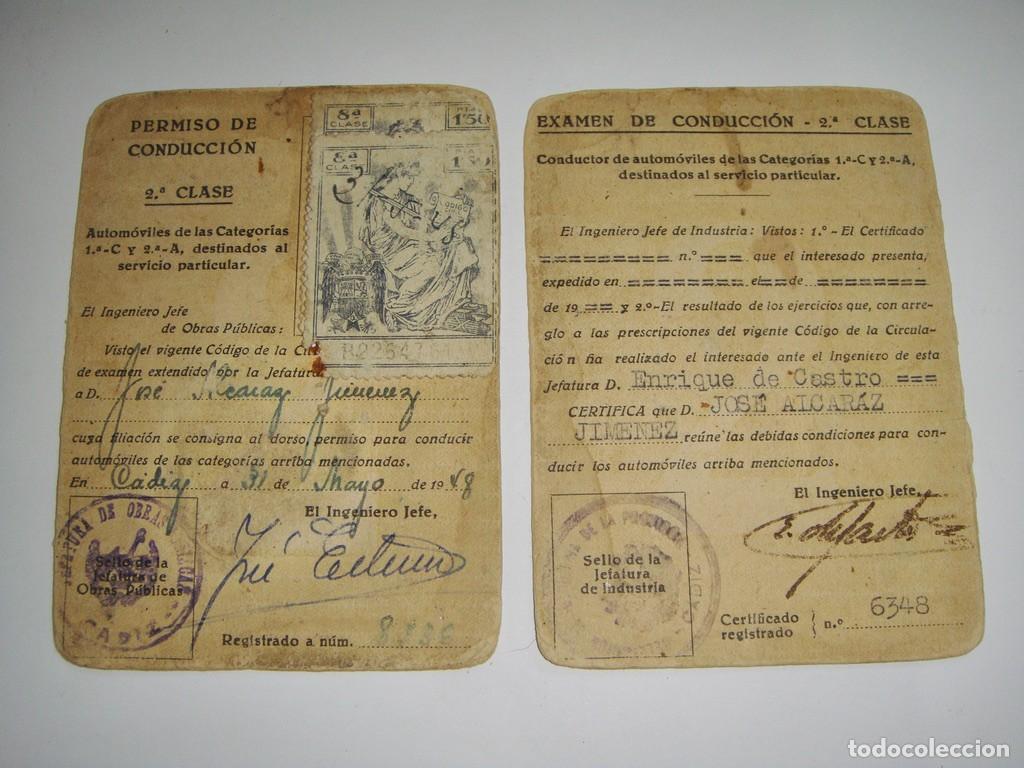 PERMISO DE
CONDUCCIÓN
2.ª CLASE
Automóviles de las Categorías
1.ª-C y 2.ª-A, destinados al
servicio particular.
El Ingeniero Jefe
de Obras Públicas:
Visto el vigente Código de la Cir
de examen extendido por la Jefatura
a D. José Alcaraz Jimenez
cuya filiación se consigna al dorso, permiso para conducir
automóviles de las categorías arriba mencionadas.
En Cádiz a 31 de Mayo de 1948
El Ingeniero Jefe,
Sello de la
Jefatura de
Obras Públicas
JEFATURA DE OBRAS
CADIZ
Registrado a núm.
8ª
CLASE
1'50
8ª
CLASE
1'50
CODIGO
EXAMEN DE CONDUCCIÓN - 2.ª CLASE
Conductor de automóviles de las Categorías 1.ª-C y 2.ª-A,
destinados al servicio particular.
El Ingeniero Jefe de Industria: Vistos: 1.º - El Certificado
========= n.º === que el interesado presenta,
expedido en ======== el == de ========
de 19 == y 2.º-El resultado de los ejercicios que, con arre-
glo a las prescripciones del vigente Código de la Circula-
ción ha realizado el interesado ante el Ingeniero de esta
Jefatura D. Enrique de Castro ===
CERTIFICA que D. JOSÉ ALCARÁZ
JIMENEZ reúne las debidas condiciones para con-
ducir los automóviles arriba mencionados.
El Ingeniero Jefe,
Sello de la
Jefatura
de Industria
CADIZ
Certificado
registrado } n.º 6348
todocoleccion